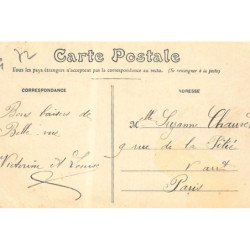 Carte Postale
Tous les pays étrangers n'acceptent pas la correspondance au recto. (Se renseigner à la poste)
CORRESPONDANCE
ADRESSE
Bons baisers de
Belle-vue
Victorine et Louise
Mlle Suzanne Chauvé
9 rue de la Pitié
Paris